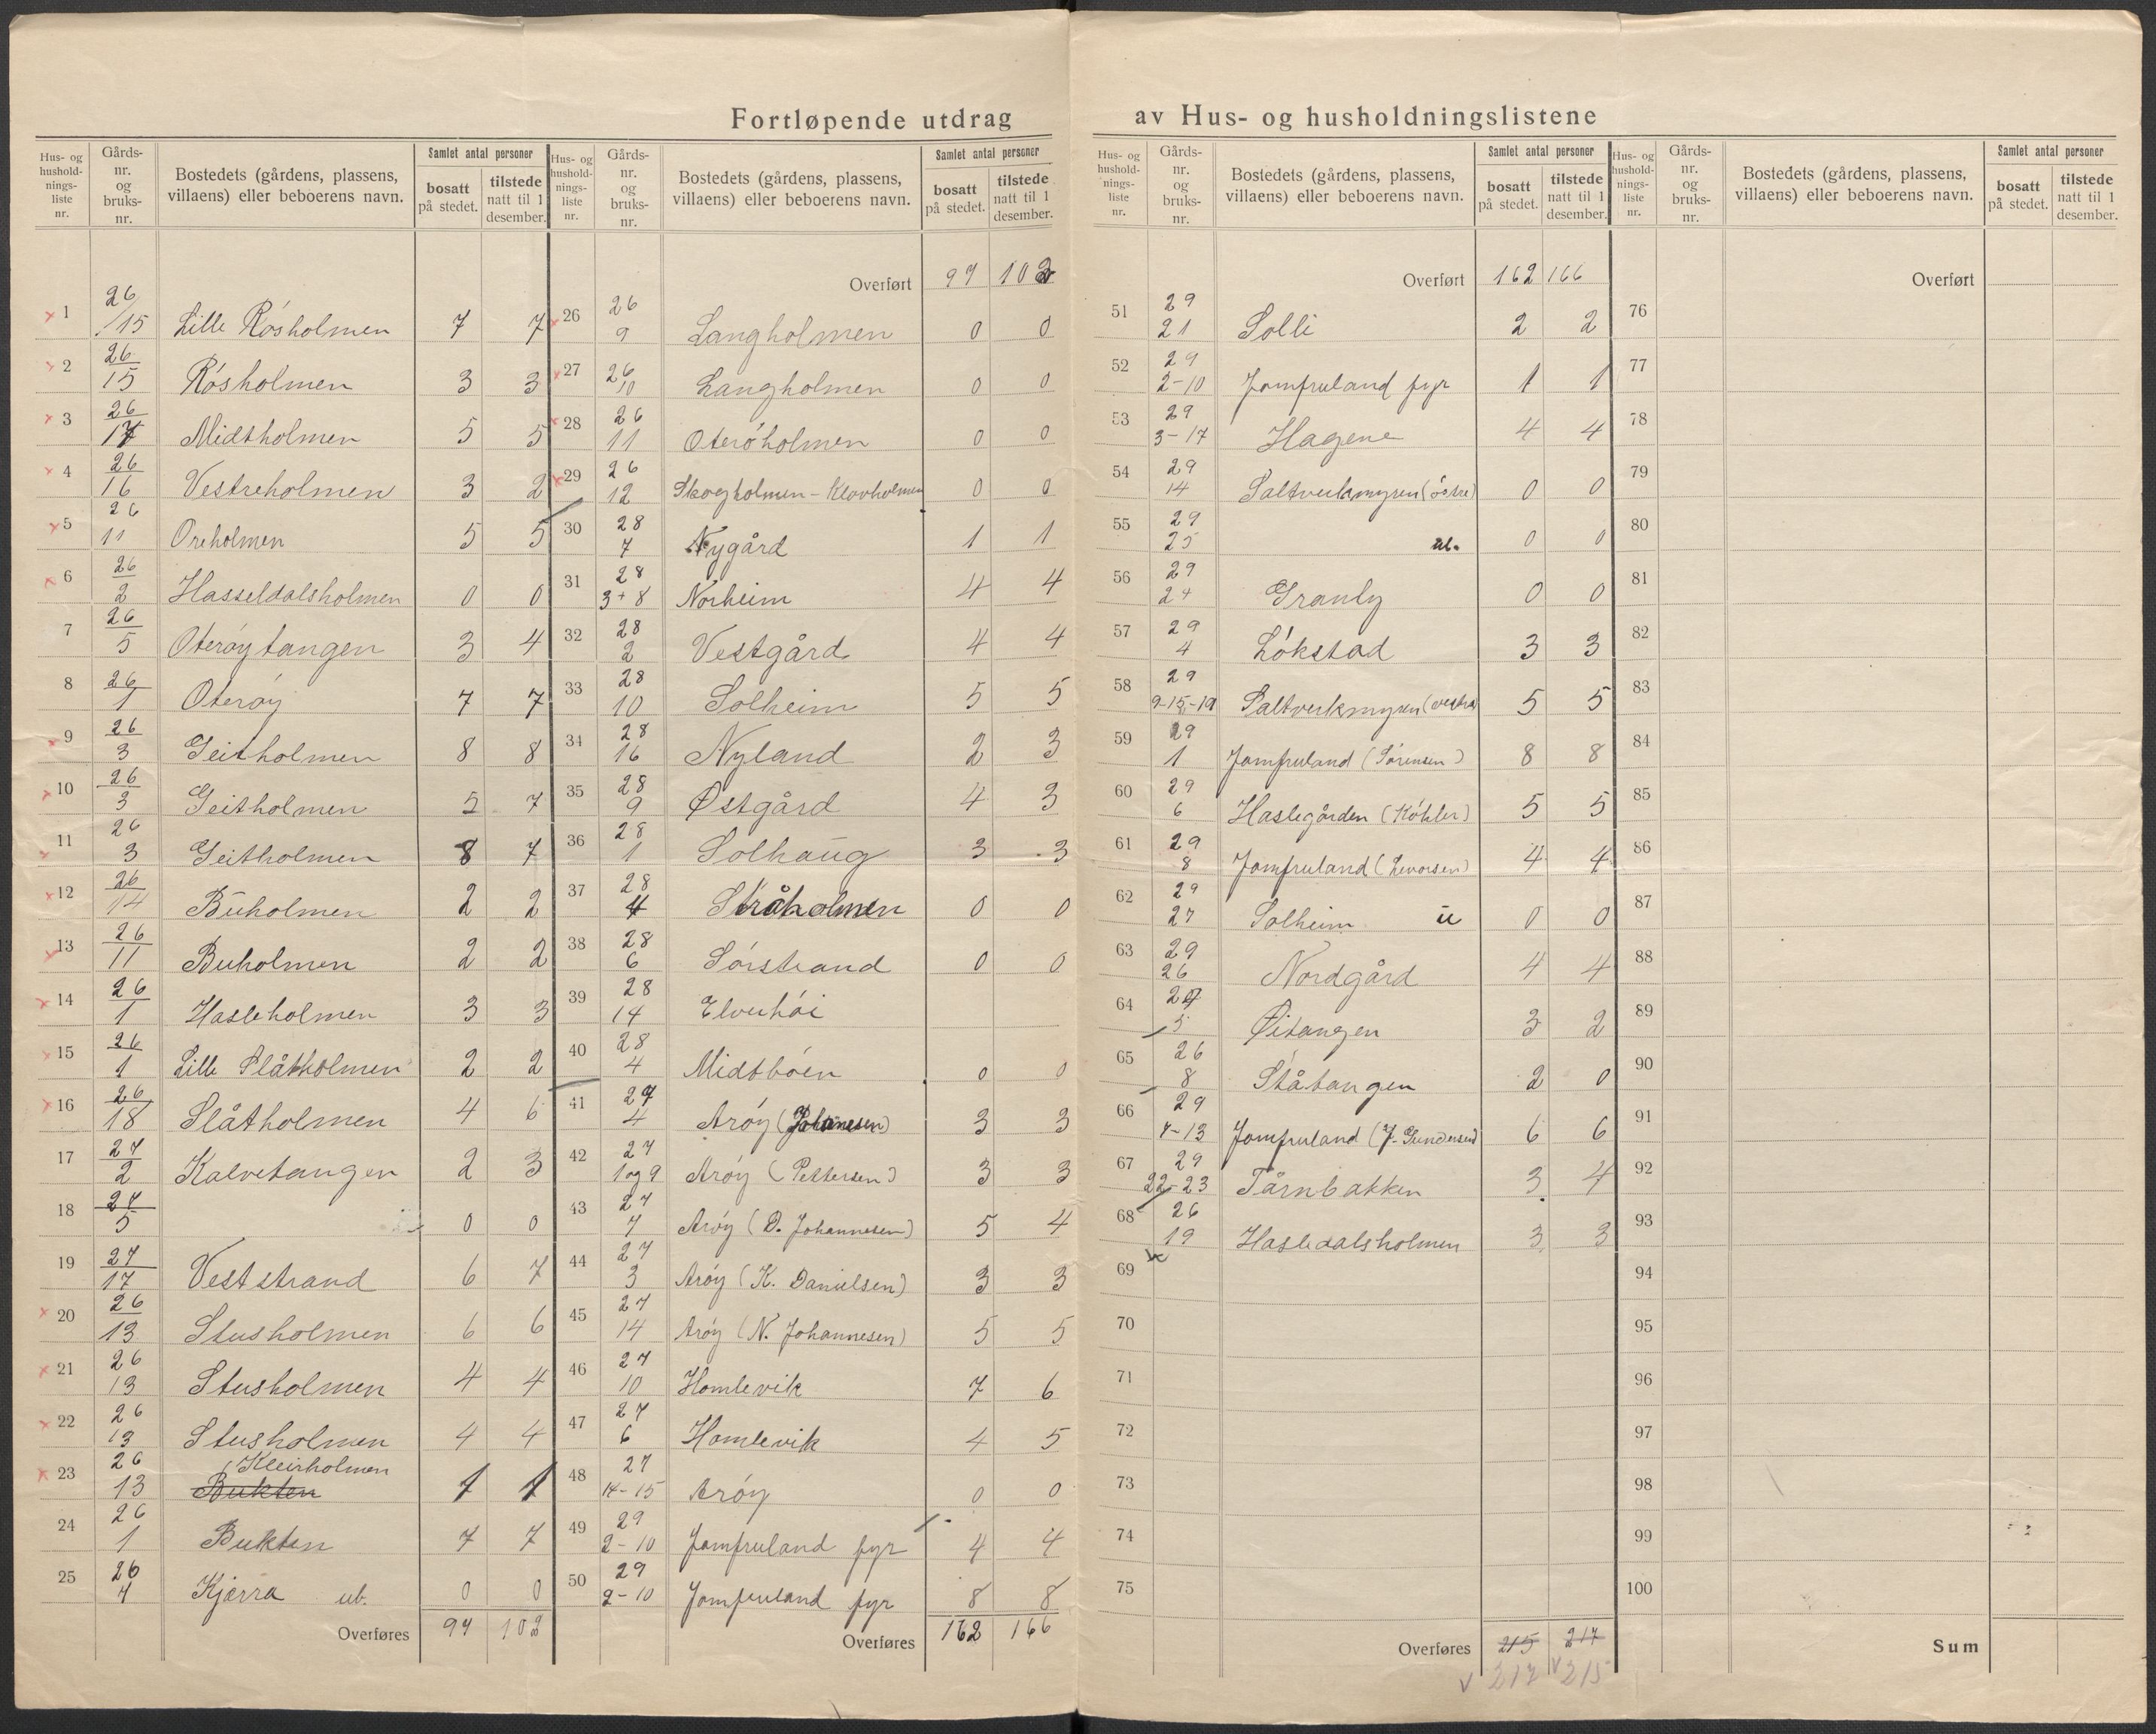 Fortløpende utdrag av Hus- og husholdningslistene
Hus- og husholdnings-liste nr. | Gårds-nr. og bruks-nr. | Bostedets (gårdens, plassens, villaens) eller beboerens navn. | Samlet antal personer bosatt på stedet. | tilstede natt til 1 desember.
1 26/15 Lille Rösholmen 7 7
2 26/15 Rösholmen 3 3
3 26/17 Midtholmen 5 5
4 26/16 Vestreholmen 3 2
5 26/11 Oreholmen 5 5
6 26/2 Hasseldalsholmen 0 0
7 26/5 Oteröytangen 3 4
8 26/1 Oteröy 7 7
9 26/3 Geitholmen 8 8
10 26/3 Geitholmen 5 7
11 26/3 Geitholmen 8 7
12 26/14 Buholmen 2 2
13 26/11 Buholmen 2 2
14 26/1 Hasleholmen 3 3
15 26/1 Lille Slåtholmen 2 2
16 26/18 Slåtholmen 4 6
17 27/2 Kalvetangen 2 3
18 27/5 0 0
19 27/17 Veststrand 6 7
20 26/13 Stusholmen 6 6
21 26/13 Stusholmen 4 4
22 26/13 Stusholmen 4 4
23 26/13 Bukten Kleirholmen 1 1
24 26/1 Bukten 7 7
25 26/4 Kjerra ub. 0 0
Overføres 97 102
Hus- og husholdnings-liste nr. | Gårds-nr. og bruks-nr. | Bostedets (gårdens, plassens, villaens) eller beboerens navn. | Samlet antal personer bosatt på stedet. | tilstede natt til 1 desember.
Overført 97 102
26 26/9 Langholmen 0 0
27 26/10 Langholmen 0 0
28 26/11 Oteröholmen 0 0
29 26/12 Skogholmen - Klovholmen 0 0
30 28/7 Nygård 1 1
31 28/3+8 Norheim 4 4
32 28/2 Vestgård 4 4
33 28/10 Solheim 5 5
34 28/16 Nyland 2 3
35 28/9 Østgård 4 3
36 28/1 Solhaug 3 3
37 28/4 Stråholmen 0 0
38 28/6 Sörstrand 0 0
39 28/14 Elverhöi
40 28/4 Midtböen 0 0
41 27/4 Aröy (Johannesen) 3 3
42 27/1 og 9 Aröy (Pettersen) 3 3
43 27/7 Aröy (D. Johannesen) 5 4
44 27/3 Aröy (K. Danielsen) 3 3
45 27/14 Aröy (N. Johannesen) 5 5
46 27/10 Homlevik 7 6
47 27/6 Homlevik 4 5
48 27/14-15 Aröy 0 0
49 29/2-10 Jomfruland fyr 4 4
50 29/2-10 Jomfruland fyr 8 8
Overføres 162 166
Hus- og husholdnings-liste nr. | Gårds-nr. og bruks-nr. | Bostedets (gårdens, plassens, villaens) eller beboerens navn. | Samlet antal personer bosatt på stedet. | tilstede natt til 1 desember.
Overført 162 166
51 29/21 Solli 2 2
52 29/2-10 Jomfruland fyr 1 1
53 29/3-17 Hagene 4 4
54 29/14 Saltverkmyren (östre) 0 0
55 29/25 ub. 0 0
56 29/24 Granly 0 0
57 29/4 Lökstad 3 3
58 29/9-15-19 Saltverkmyren (vestre) 5 5
59 29/1 Jomfruland (Sörensen) 8 8
60 29/6 Haslegården (Köhler) 5 5
61 29/8 Jomfruland (Levorsen) 4 4
62 29/27 Solheim u 0 0
63 29/26 Nordgård 4 4
64 29/5 Øitangen 3 2
65 26/8 Ståtangen 2 0
66 29/7-13 Jomfruland (J. Gundersen) 6 6
67 29/22-23 Tårnbakken 3 4
68 26/19 Hasledalsholmen 3 3
69
70
71
72
73
74
75
Overføres 215 217
217 215
Hus- og husholdnings-liste nr. | Gårds-nr. og bruks-nr. | Bostedets (gårdens, plassens, villaens) eller beboerens navn. | Samlet antal personer bosatt på stedet. | tilstede natt til 1 desember.
Overført
76
77
78
79
80
81
82
83
84
85
86
87
88
89
90
91
92
93
94
95
96
97
98
99
100
Sum